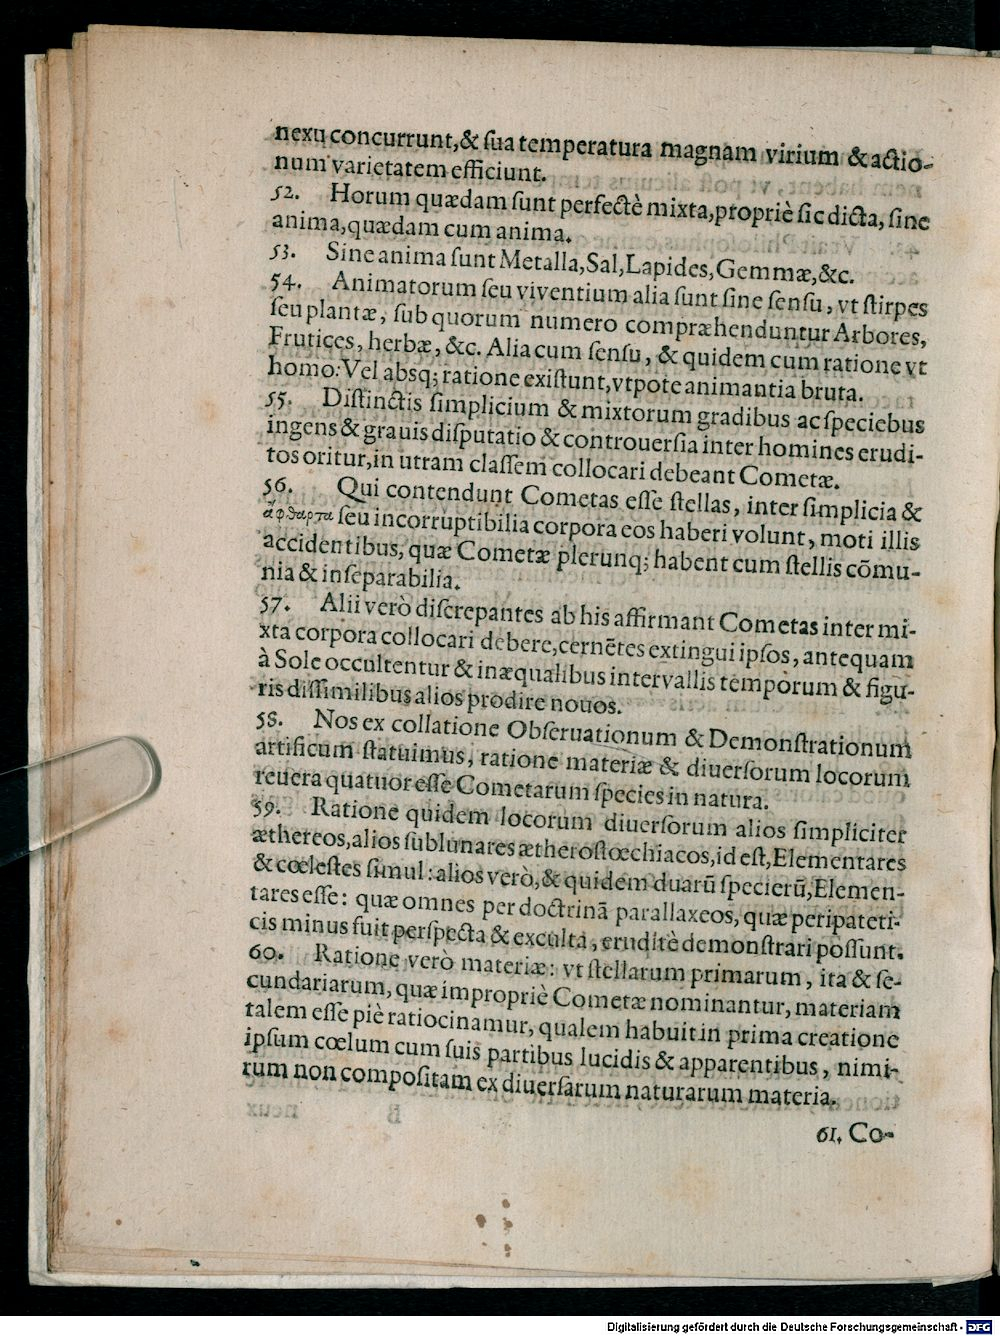 nexu concurrunt,& ſua temperatura magnam virium & actio-
num varietatem efficiunt.
52. Horum quædam ſunt perfectè mixta,propriè ſic dicta, ſine
anima,quædam cum anima.
53. Sine anima ſunt Metalla,Sal,Lapides,Gemmæ,&c.
54. Animatorum ſeu viventium alia ſunt ſine ſenſu, vt ſtirpes
ſeu plantæ, ſub quorum numero compræhenduntur Arbores,
Frutices, herbæ, &c. Alia cum ſenſu, & quidem cum ratione vt
homo: Vel absq; ratione exiſtunt,vtpote animantia bruta.
55. Diſtinctis ſimplicium & mixtorum gradibus ac ſpeciebus
ingens & grauis diſputatio & controuerſia inter homines erudi-
tos oritur,in utram claſſem collocari debeant Cometæ.
56. Qui contendunt Cometas eſſe ſtellas, inter ſimplicia &
ἄφθαρτα ſeu incorruptibilia corpora eos haberi volunt, moti illis
accidentibus, quæ Cometæ plerunq; habent cum ſtellis cōmu-
nia & inſeparabilia.
57. Alii verò diſcrepantes ab his affirmant Cometas inter mi-
xta corpora collocari debere,cernētes extingui ipſos, antequam
à Sole occultentur & inæqualibus intervallis temporum & figu-
ris diſſimilibus alios prodire nouos.
58. Nos ex collatione Obſeruationum & Demonſtrationum
artificum ſtatuimus, ratione materiæ & diuerſorum locorum
reuera quatuor eſſe Cometarum ſpecies in natura.
59. Ratione quidem locorum diuerſorum alios ſimpliciter
æthereos,alios ſublunares ætheroſtœchiacos,id eſt,Elementares
& cœleſtes ſimul: alios verò,& quidem duarū ſpecierū,Elemen-
tares eſſe: quæ omnes per doctrinā parallaxeos, quæ peripateti-
cis minus fuit perſpecta & exculta, eruditè demonſtrari poſſunt.
60. Ratione verò materiæ: vt ſtellarum primarum, ita & ſe-
cundariarum, quæ impropriè Cometæ nominantur, materiam
talem eſſe piè ratiocinamur, qualem habuit in prima creatione
ipſum cœlum cum ſuis partibus lucidis & apparentibus, nimi-
rum non compoſitam ex diuerſarum naturarum materia.
61. Co-
Digitalisierung gefördert durch die Deutsche Forschungsgemeinschaft - DFG